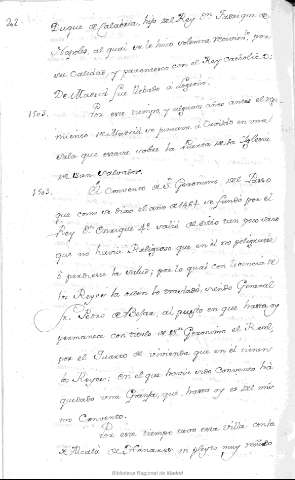 202
Duque de Calabria, hijo del Rey Dn. Fadrique de
Napoles, al qual se le hizo solemne recivimto. por
su Calidad, y parentesco con el Rey Catholico:
De Madrid fue llebado à Logroño.
1503. Por este tiempo, y algunos años antes el regi-
miento de Madrid se juntava à Cavildo en una
sala que estava sobre la Puerta de la Iglesia
de San Salvador.
1503. El Convento de Sn. Geronimo del Passo
que como va dicho el año de 1464 se fundó por el
Rey Dn. Enrique 4º. salió de sitio tan poco sano
que no havia Religioso que en él no peligrase,
ò perdiesse la vida; por lo qual con licencia de
los Reyes la casa se trasladó, siendo General
Fr. Pedro de Bejar, al puesto en que hasta oy
permanece con titulo de Sn. Geronimo el Real,
por el Quarto de vivienda que en él tienen
los Reyes: en el que havia sido Convento ha
quedado una Granja, que hasta oy es del mis-
mo Convento.
Por este tiempo tuvo esta villa con la
de Alcalá de Henares un pleyto muy reñido
Biblioteca Regional de Madrid